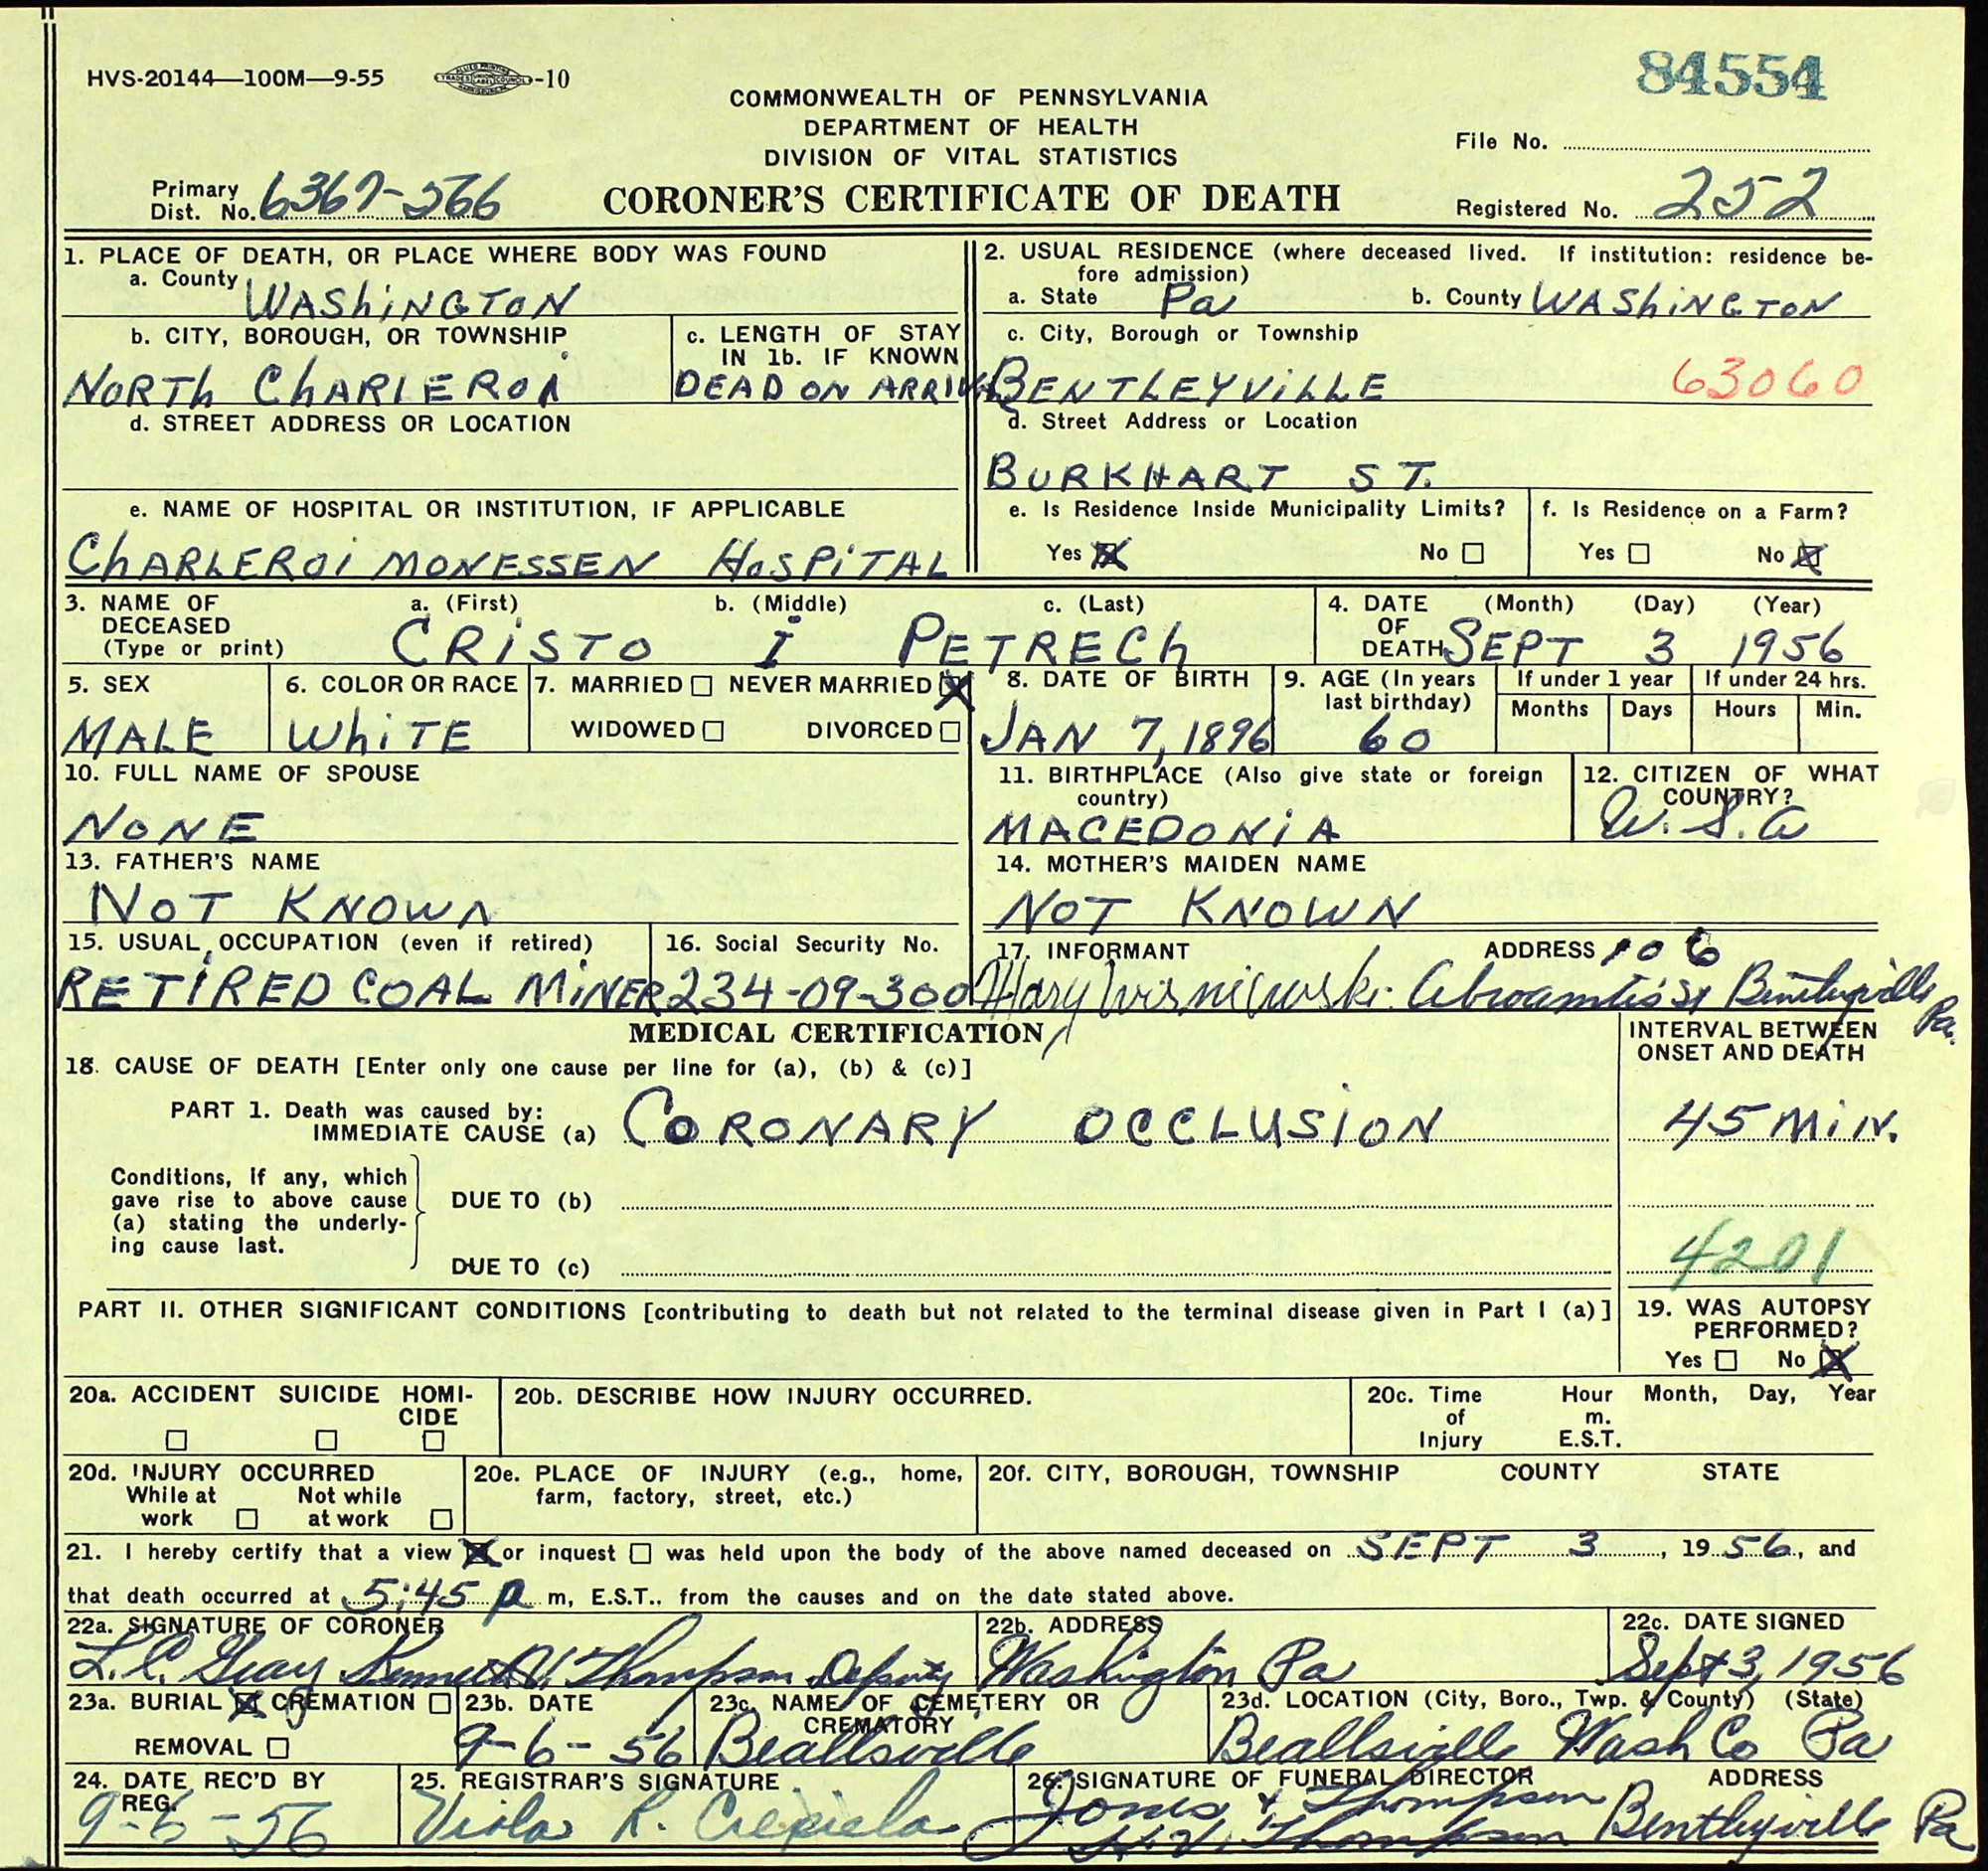 84554
HVS-20144—100M—9-55 -10
COMMONWEALTH OF PENNSYLVANIA
DEPARTMENT OF HEALTH
DIVISION OF VITAL STATISTICS
File No.
Primary Dist. No. 6367-566
CORONER'S CERTIFICATE OF DEATH
Registered No. 252
1. PLACE OF DEATH, OR PLACE WHERE BODY WAS FOUND
a. County WASHINGTON
2. USUAL RESIDENCE (where deceased lived. If institution: residence be-
fore admission)
a. State Pa b. County WASHINGTON
b. CITY, BOROUGH, OR TOWNSHIP
NORTH CHARLEROI
c. LENGTH OF STAY
IN 1b. IF KNOWN
DEAD ON ARRIVAL
c. City, Borough or Township
BENTLEYVILLE 63060
d. STREET ADDRESS OR LOCATION
d. Street Address or Location
BURKHART ST.
e. NAME OF HOSPITAL OR INSTITUTION, IF APPLICABLE
CHARLEROI MONESSEN HOSPITAL
e. Is Residence Inside Municipality Limits?
Yes No
f. Is Residence on a Farm?
Yes No
3. NAME OF
DECEASED
(Type or print)
a. (First) b. (Middle) c. (Last)
CRISTO I PETRECH
4. DATE (Month) (Day) (Year)
OF
DEATH SEPT 3 1956
5. SEX
MALE
6. COLOR OR RACE
WHITE
7. MARRIED NEVER MARRIED
WIDOWED DIVORCED
8. DATE OF BIRTH
JAN 7, 1896
9. AGE (In years
last birthday)
60
If under 1 year
Months Days
If under 24 hrs.
Hours Min.
10. FULL NAME OF SPOUSE
NONE
11. BIRTHPLACE (Also give state or foreign
country)
MACEDONIA
12. CITIZEN OF WHAT
COUNTRY?
U.S.A
13. FATHER'S NAME
NOT KNOWN
14. MOTHER'S MAIDEN NAME
NOT KNOWN
15. USUAL OCCUPATION (even if retired)
RETIRED COAL MINER
16. Social Security No.
234-09-300
17. INFORMANT ADDRESS 106
Mary Wisniewski St Bentleyville Pa.
MEDICAL CERTIFICATION
INTERVAL BETWEEN
ONSET AND DEATH
18. CAUSE OF DEATH [Enter only one cause per line for (a), (b) & (c)]
PART 1. Death was caused by:
IMMEDIATE CAUSE (a) CORONARY OCCLUSION 45 MIN.
Conditions, if any, which
gave rise to above cause
(a) stating the underly-
ing cause last.
DUE TO (b)
DUE TO (c)
4201
PART II. OTHER SIGNIFICANT CONDITIONS [contributing to death but not related to the terminal disease given in Part I (a)]
19. WAS AUTOPSY
PERFORMED?
Yes No
20a. ACCIDENT SUICIDE HOMI-
CIDE
20b. DESCRIBE HOW INJURY OCCURRED.
20c. Time Hour Month, Day, Year
of m.
Injury E.S.T.
20d. INJURY OCCURRED
While at Not while
work at work
20e. PLACE OF INJURY (e.g., home,
farm, factory, street, etc.)
20f. CITY, BOROUGH, TOWNSHIP COUNTY STATE
21. I hereby certify that a view or inquest was held upon the body of the above named deceased on SEPT 3, 1956, and
that death occurred at 5:45 P m, E.S.T., from the causes and on the date stated above.
22a. SIGNATURE OF CORONER
L.C. Gray Kenneth V. Thompson Deputy
22b. ADDRESS
Washington Pa
22c. DATE SIGNED
Sept 3, 1956
23a. BURIAL CREMATION
REMOVAL
23b. DATE
9-6-56
23c. NAME OF CEMETERY OR
CREMATORY
Beallsville
23d. LOCATION (City, Boro., Twp. & County) (State)
Beallsville Wash Co Pa
24. DATE REC'D BY
REG.
9-6-56
25. REGISTRAR'S SIGNATURE
Viola R.
26. SIGNATURE OF FUNERAL DIRECTOR ADDRESS
Jones & Thompson
K. V. Thompson Bentleyville Pa